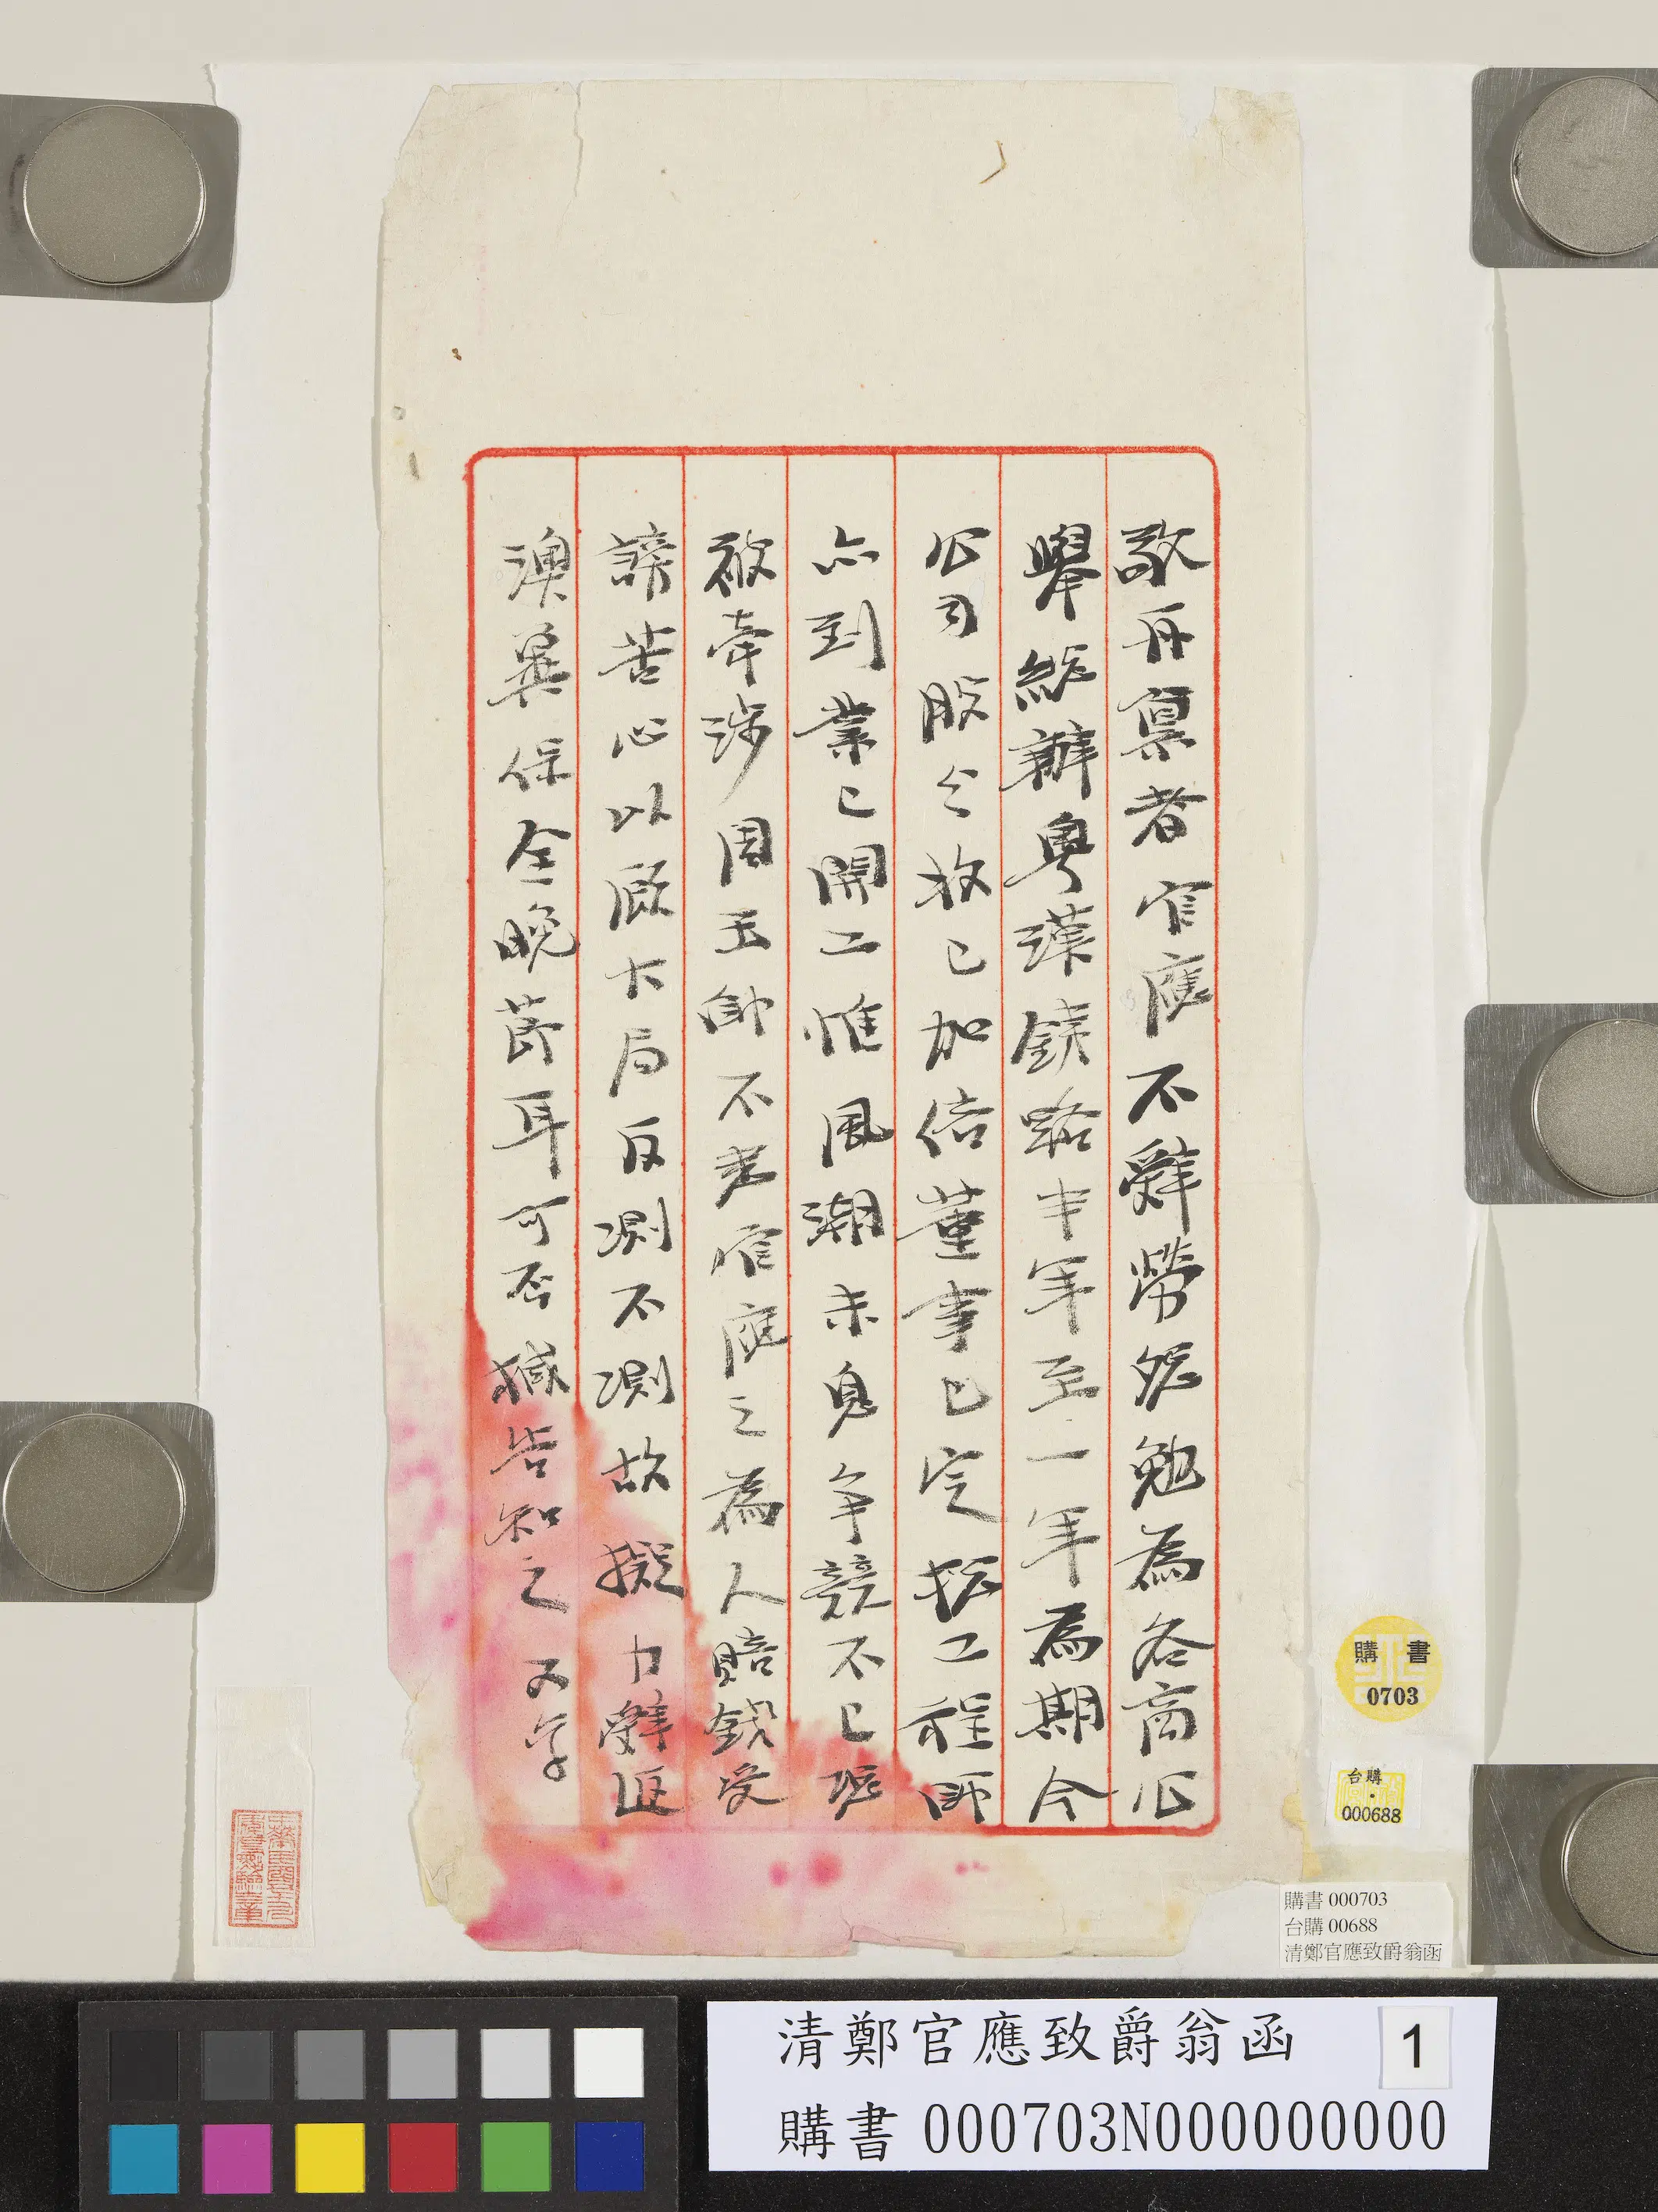 敬再稟者官應不辭勞怨勉為各商公
舉總辦粵漢鐵路半年至一年為期今
公司股分收已加倍董事已定總工程師
亦到業已開工惟風潮未息爭競不已現
被牽涉周玉帥不老官應之為人賠錢受
謗苦心以顧大局反測不測故擬力辭返
澳冀保全晚節耳可否緘告知之 又字
購書
0703
台購
000688
購書 000703
台購 00688
清鄭官應致爵翁函
清鄭官應致爵翁函 1
購書 000703N000000000